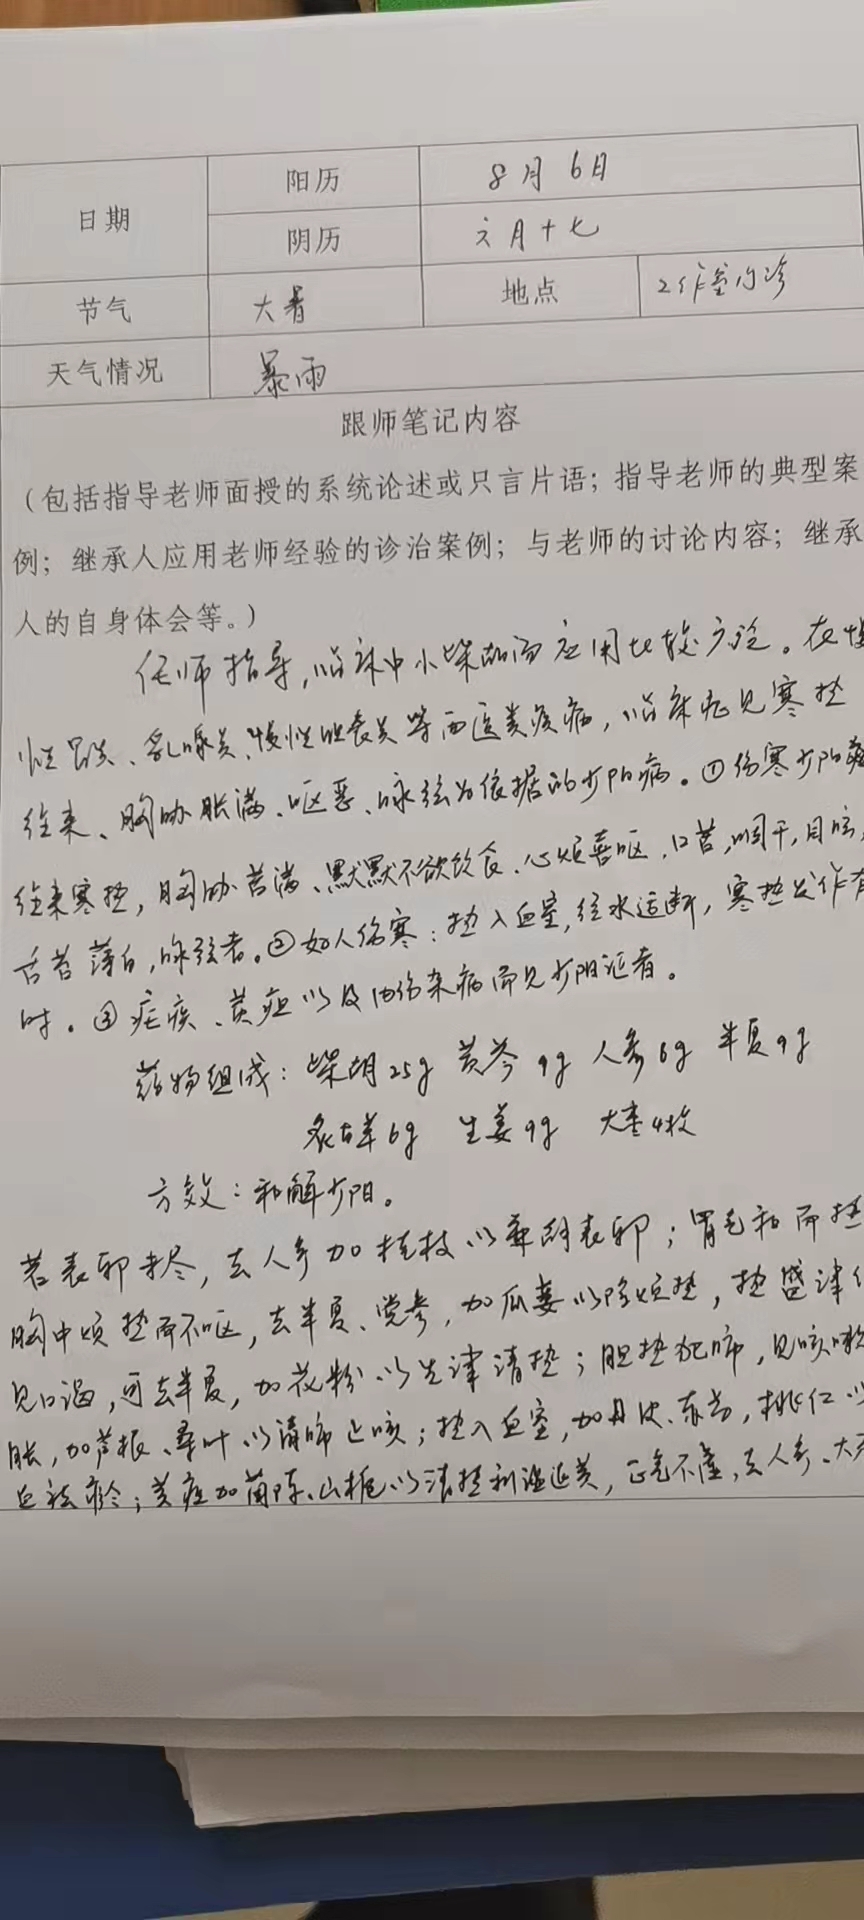 日期 阳历 8月6日
阴历 六月十七
节气 大暑 地点 工作室门诊
天气情况 暴雨
跟师笔记内容
（包括指导老师面授的系统论述或只言片语；指导老师的典型案
例；继承人应用老师经验的诊治案例；与老师的讨论内容；继承
人的自身体会等。）
任师指导，临床中小柴胡汤应用比较广泛。在慢
性胃炎、乳腺炎、慢性胆囊炎等西医类疾病，临床症见寒热
往来、胸胁胀满、呕恶、脉弦为依据的少阳病。①伤寒少阳
往来寒热，胸胁苦满、默默不欲饮食、心烦喜呕，口苦，咽干，目眩，
舌苔薄白，脉弦者。②妇人伤寒：热入血室，经水适断，寒热发作有
时。③疟疾、黄疸以及内伤杂病而见少阳证者。
药物组成：柴胡25g 黄芩9g 人参6g 半夏9g
炙甘草6g 生姜9g 大枣4枚
方效：和解少阳。
若表邪未尽，去人参加桂枝以兼解表邪；胃气和而热
胸中烦热而不呕，去半夏、党参，加瓜蒌以除烦热，热盛津
见口渴，可去半夏，加花粉以生津清热；胆热犯肺，见咳嗽
胀，加芦根、桑叶以清肺止咳；热入血室，加丹皮、赤芍，桃仁以
血祛瘀；黄疸加茵陈、山栀以清热利湿退黄，正气不虚，去人参、大